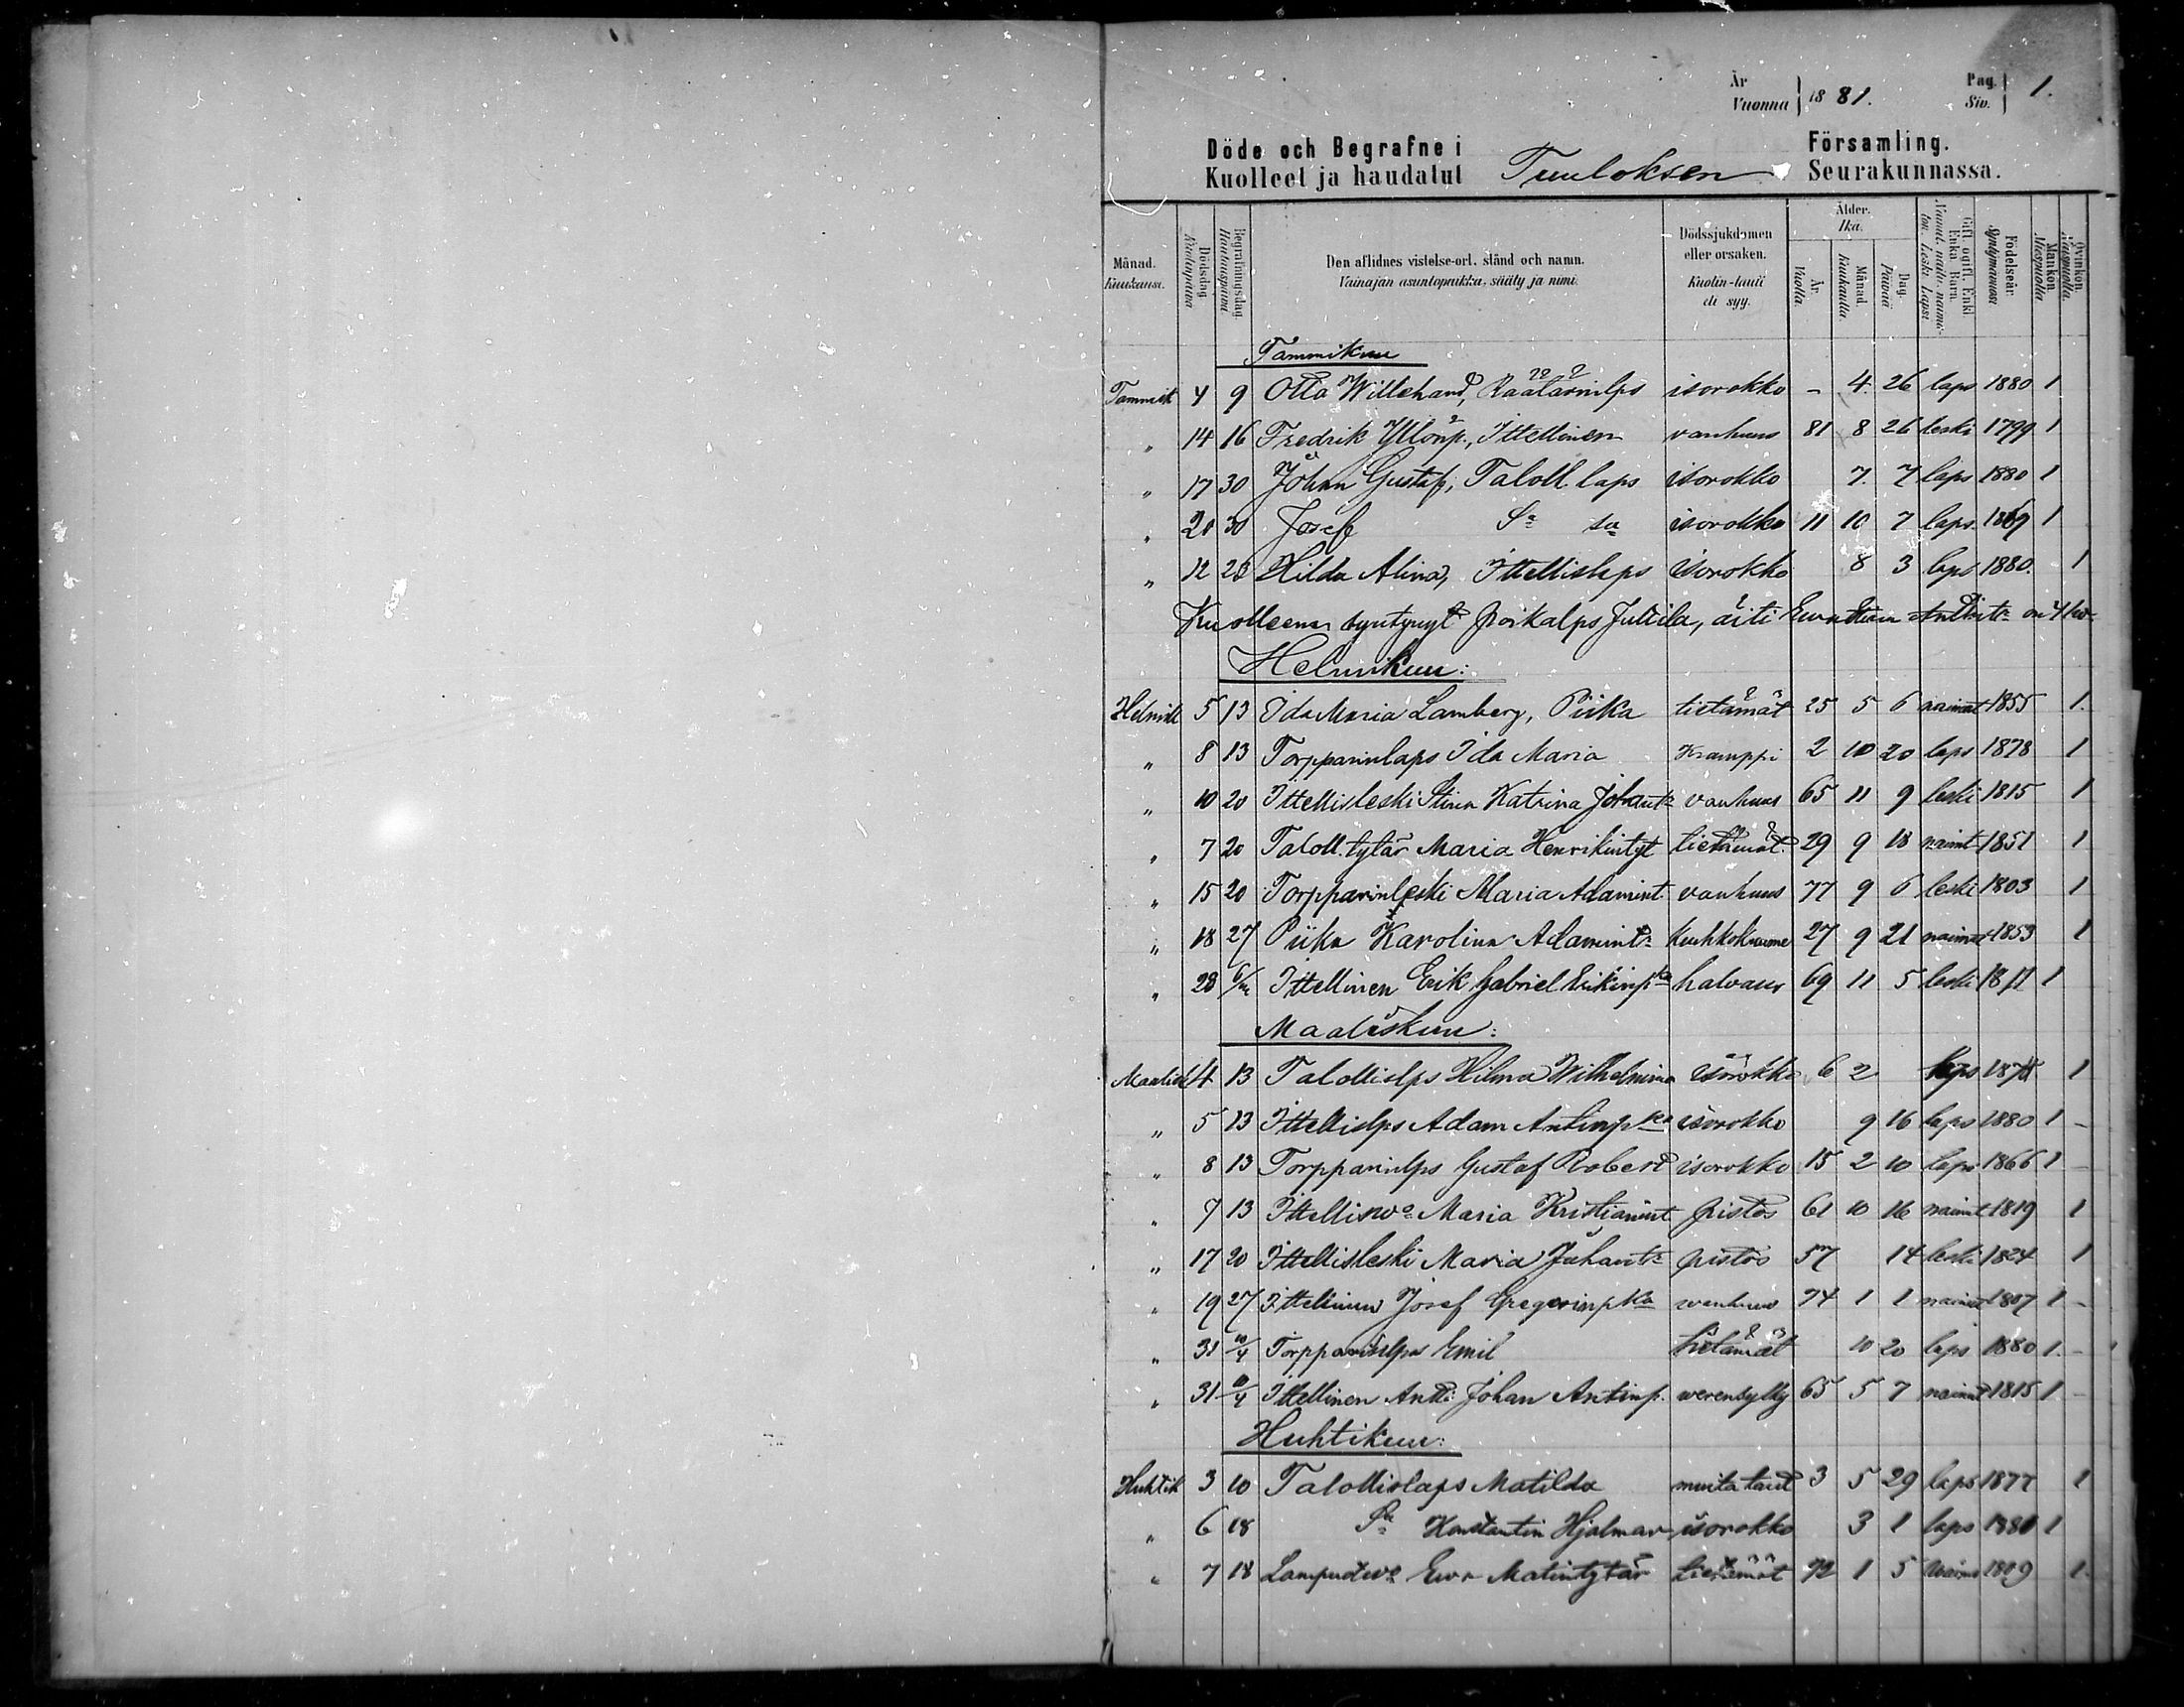 År Vuonna 1881. Pag. Siv. 1.
Döde och Begrafne i Församling.
Kuolleet ja haudatut Tuuloksen Seurakunnassa.
Månad. Kuukausi. Dödsdag Kuolopäivä Begrafningsdag Hautauspäivä Den aflidnes vistelse-ort, stånd och namn. Vainajan asuntopaikka, sääty ja nimi. Dödssjukdomen eller orsaken. Kuolin-tauti eli syy. Ålder. Ikä. År. Vuotta. Månad. Kuukautta. Dag. Päivää Gift, ogift, Enkl. Enka. Barn. Födelseår. Syntymävuosi Mankön. Miespuolia. Qvinkön. Vaispuolia.
Tammikuu
Tammik 4 9 Otto Willehard, Räätärinlps isorokko - 4 26 laps 1880 1
" 14 16 Fredrik Yllönp., Ittellinen vanhuus 81 8 26 leski 1799 1
" 17 30 Johan Gustaf, Taloll. laps isorokko 7 7 laps 1880 1
" 20 30 Josef Sa sa isorokko 11 10 7 laps 1869 1
" 12 23 Hilda Alina, Ittellislaps isorokko 8 3 laps 1880. 1
Kuolleena syntynyt poikalps Juttila, äiti
Helmikuu:
Helmik 5 13 Ida Maria Lamberg, Piika tietämät 25 5 6 naimat 1855 1.
" 8 13 Torpparinlaps Ida Maria Kramppi 2 10 20 laps 1878 1
" 10 20 Ittellisleski Stina Katrina Johant: vanhuus 65 11 9 leski 1815 1
" 7 20 Taloll. tytär Maria Henrikintyt tietämät 29 9 18 naimt 1851 1
" 15 20 Torpparinleski Maria Adamint vanhuus 77 9 6 leski 1803 1
" 18 27 Piika Karolina Adamint: keuhkokuume 27 9 21 naimat 1853 1
" 28 6/m Ittellinen Erik Gabriel Erikinpka halvaus 69 11 5 leski 1811 1
Maaliskuu:
Maalisk 4 13 Talollislps Hilma Wilhelmina isorokko 6 2 laps 1874 1
" 5 13 Ittellislps Adam Antinpka isorokko 9 16 laps 1880 1 -
" 8 13 Torpparinlps Gustaf Robert isorokko 15 2 10 laps 1866 1 -
" 7 13 Ittellisvo Maria Kristianint pistos 61 10 16 naimt 1819 1
" 17 20 Ittellisleski Maria Juhant: pistos 57 14 leski 1824 1
" 19 27 Ittellinen Josef Gregorinpka wanhuus 74 1 1 naimat 1807 1 -
" 31 10/4 Torpparinlps Emil tietämät 10 20 laps 1880 1. -
" 31 10/4 Ittellinen Antti Johan Antinp. werensylky 65 5 7 naimat 1815 1 -
Huhtikuu:
Huhtik 3 10 Talollislaps Matilda muita taut 3 5 29 laps 1877 1
" 6 18 Sa Konstantin Hjalmar isorokko 3 1 laps 1881 1
" 7 18 Lampuotivo Ewa Matintytär tietämät 72 1 5 1809 1.